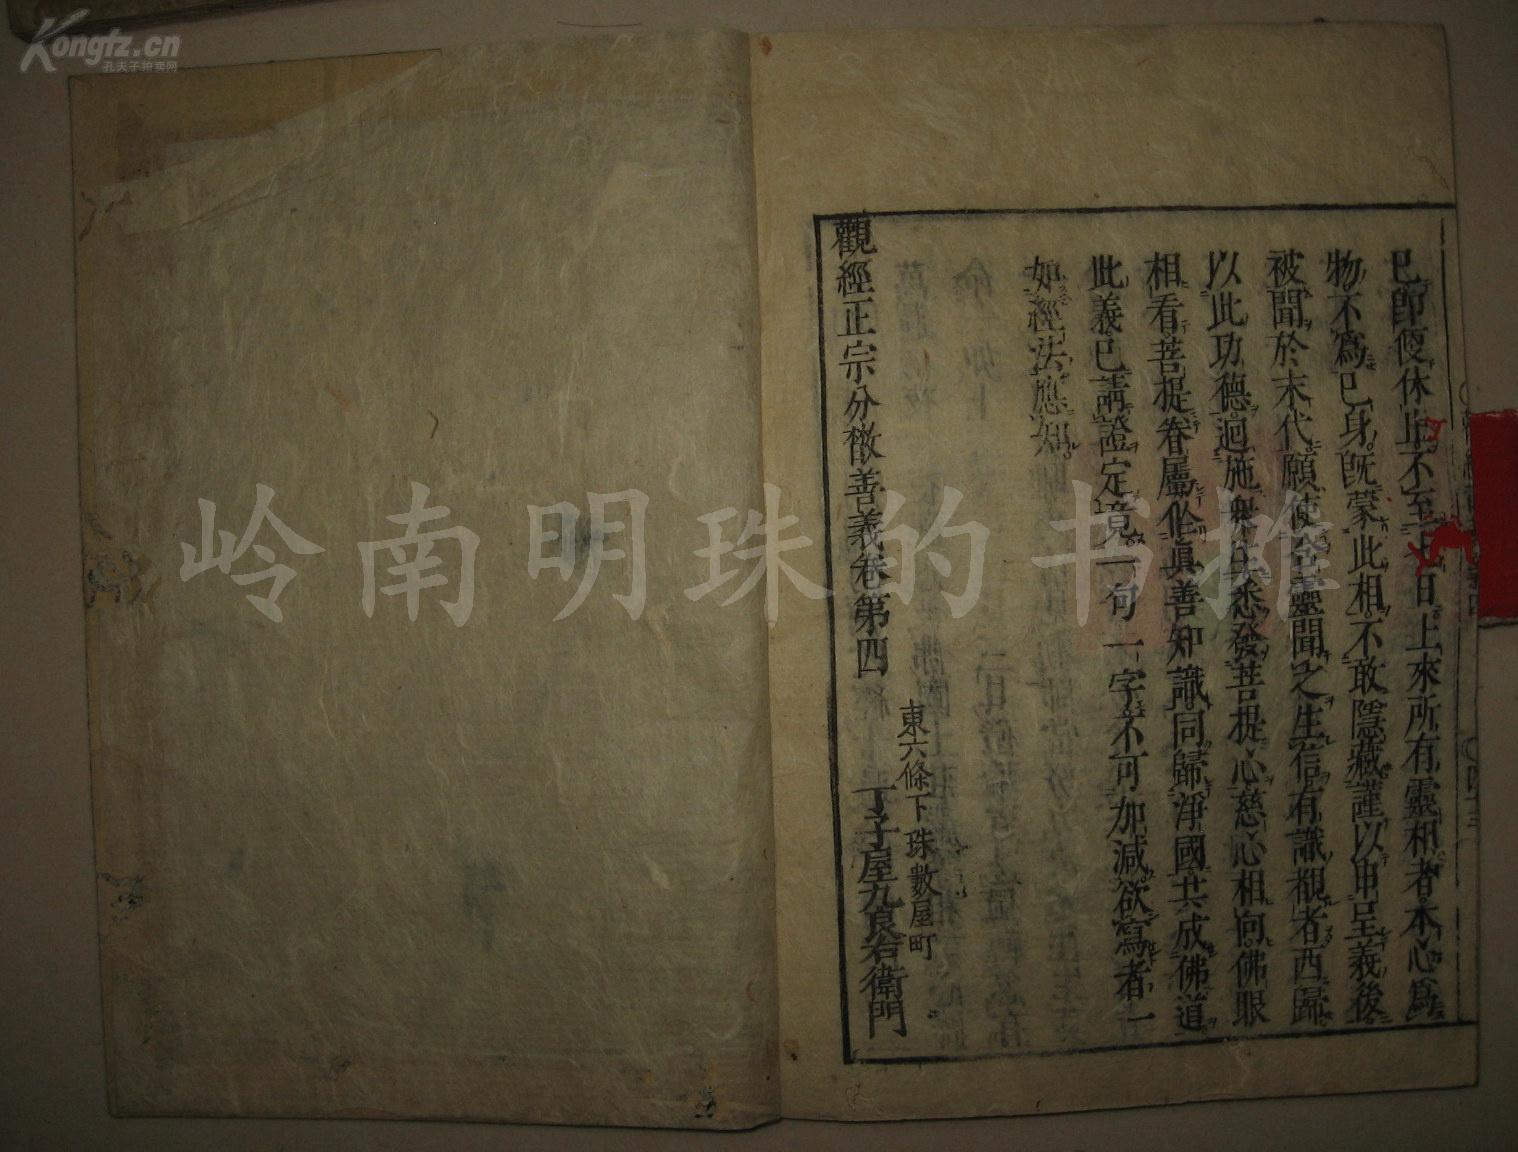 已即便休止不至七日上來所有靈相者本心爲
物不爲已身既蒙此相不敢隱藏謹以申呈義後
被聞於末代願使含靈聞之生信有識覩者西歸
以此功德迴施衆生悉發菩提心慈心相向佛眼
相看菩提眷屬作真善知識同歸淨國共成佛道
此義已請證定竟一句一字不可加減欲寫者一
如經法應知
東六條下珠數屋町
丁子屋九良右衛門
觀經正宗分散善義卷第四
Kongfz.cn
孔夫子拍卖网
岭南明珠的书摊